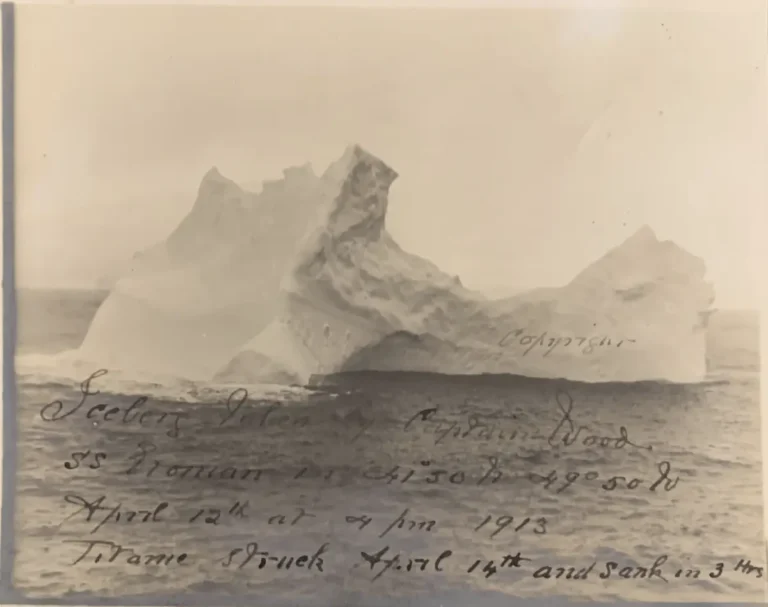 Copyright
Iceberg Taken by Captain Wood
SS in 41°50 N 49°50 W
April 12th at 4 pm 1913
Titanic struck April 14th and sank in 3 Hrs